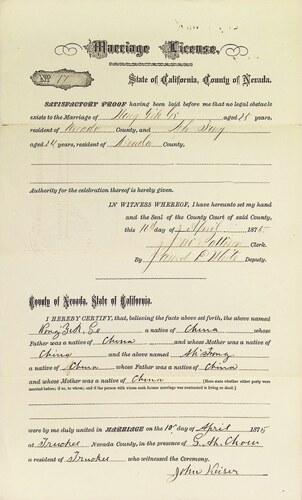 Marriage License,
No. 17
State of California, County of Nevada.
SATISFACTORY PROOF having been laid before me that no legal obstacle
exists to the Marriage of Wong aged years,
resident of Nevada County, and Ah
aged 24 years, resident of Nevada County.
Authority for the celebration thereof is hereby given.
IN WITNESS WHEREOF, I have hereunto set my hand
and the Seal of the County Court of said County,
this day of April 1875
Clerk.
By Deputy.
County of Nevada, State of California.
I HEREBY CERTIFY, that, believing the facts above set forth, the above named
Wong a native of China whose
Father was a native of China and whose Mother was a native of
China and the above named Ah
a native of China whose Father was a native of China
and whose Mother was a native of China (Here state whether either party were married
before; if so, to whom; and if the person with whom former marriage was contracted is living or dead.)
were by me duly united in MARRIAGE on the 10th day of April 1875
at Truckee Nevada County, in the presence of Ah
a resident of Truckee who witnessed the Ceremony.
John Keiser